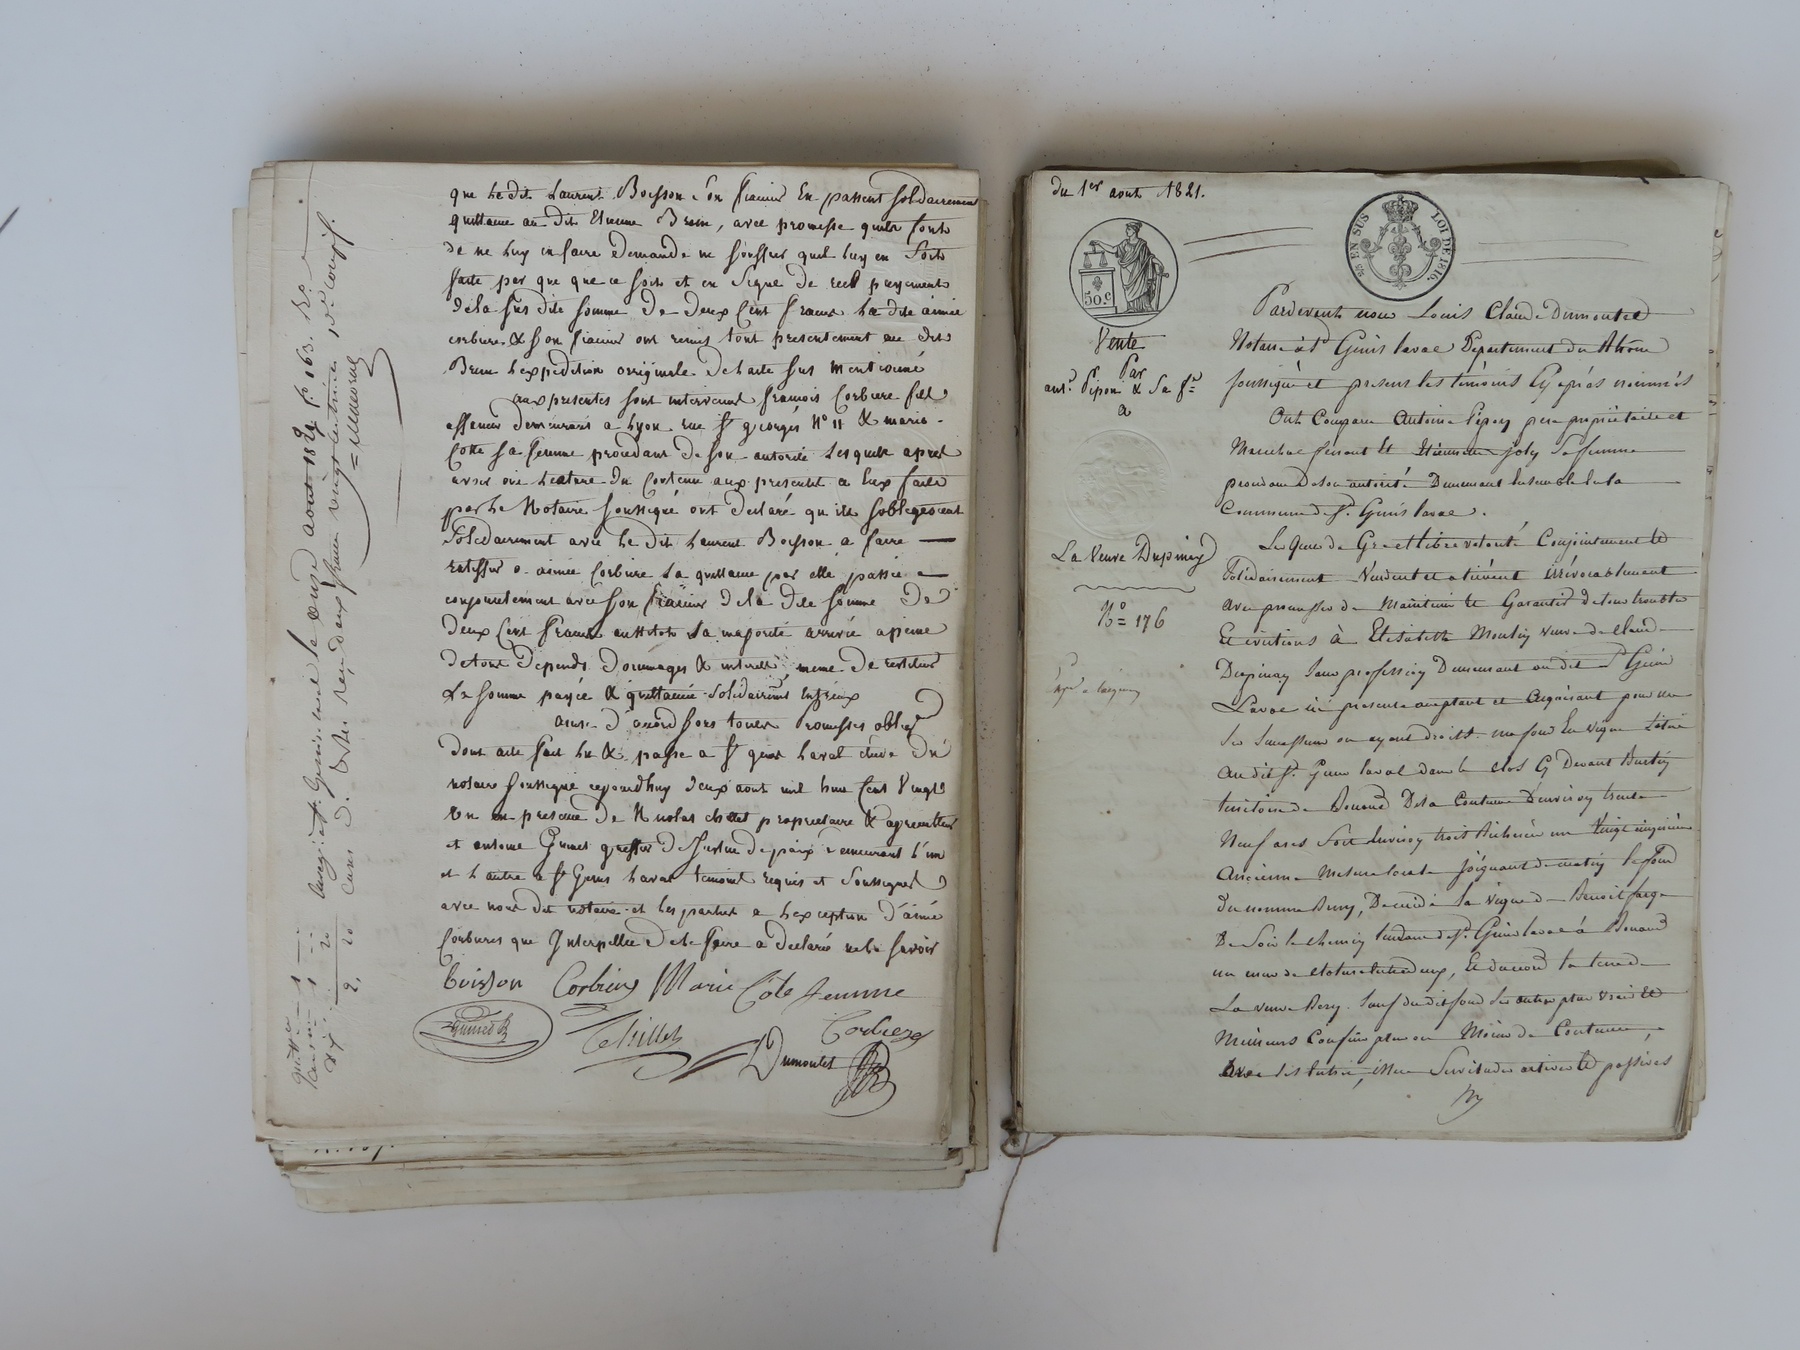 que le dit Laurent Boisson & son fiancée En passent solidairement
quittance au dit Etienne Brun, avec promesse quils font
de ne luy en faire demande ne souffrir quil luy en soit
faite par qui que ce soit et en signe de reel payement
de la sus dite somme De Deux Cent francs La dite aimée
corbiere & son fiancée ont remis tout presentement au dit
Brun Lexpedition originale De Lacte sus mentionné
aux presentes sont intervenus francois Corbiere fils
affaneur demeurant a Lyon rue St georges N° 11 & marie
Cotte sa femme procedant De son autorité Lesquels apres
avoir oui Lecture Du Contenu aux presentes a Eux faite
par Le Notaire soussigné ont declaré qu ils sobligeoient
solidairement avec Le dit Laurent Boisson a faire
ratiffier a aimée Corbiere La quittance par elle passée
conjointement avec son fiancée De La dite somme De
Deux Cent francs aussitot sa majorité arrivée a peine
De tous Depends Dommages & interets, meme De restituer
La somme payée & quittancée solidairement Entreux
ainsi D'accord sous toutes Promesses oblig
Dont acte fait Lu & passé a St genis Laval etude Du
notaire soussigné cejourdhuy Deux aout mil huit Cent Vingt
Un en presence De Nicolas chillet proprietaire & agriculteur
et antoine Grimet greffier De Justice De paix Demeurant L'un
et Lautre a St Genis Laval temoins requis et soussignés
avec nous dit notaire et les parties a Lexception D'aimée
Corbieres que Interpellée De Le faire a declaré ne le savoir
boisson Corbiere Marie Cote femme
Grimet Chillet Corbiere
Dumoulet
Enregist. a St. Genis-Laval le onze aout 1821 f° 163.
reçu deux francs vingt centimes
quitt
2, 20
du 1er aout 1821.
33 EN SUS LOI DE 1816.
50 c
Vente
Par
ant. Pipon & Sa fe
a
La Veuve Dupinay
N° 176
Pardevant nous Louis Claude Dumoulet
Notaire à St Genis laval Département du Rhône
soussigné et présens les témoins Cy après nommés
Ont Comparu Antoine Pipon pere propriétaire et
Marechal ferrant Et Etiennette joly Sa femme
procedant De son autorité Demeurant Ensemble En la
Commune de St. Genis laval.
Les Quels de Gré et libre volonté Conjointement Et
Solidairement Vendent et alienent irrévocablement
Avec promesse de Maintenir Et Garantir De tous troubles
Et évictions à Elisabeth Moulin veuve de Claude
Dupinay Sans profession Demeurant au dit St Genis
Laval ici presente acceptant et acquérant pour elle
Ses Successeurs ou ayant droits un fond En vigne Situé
Au dit St. Genis laval dans le clos Cy Devant
territoire de De la Contenue D'environ trente
Neuf ares Soit Environ trois Bicherées un Vingt
Ancienne Mesure locale Joignant de matin le fond
Du nomme, De midi La Vigne de Benoit farge
De Soir le chemin tendant de St. Genis laval à
un mur de cloture Entre deux, Et du nord la terre de
La veuve Sauf du dit fond Ses autres plus vrais Et
Meilleurs Confins plus ou Moins de Contenue,
Avec Ses Entrées, issues Servitudes actives Et passives